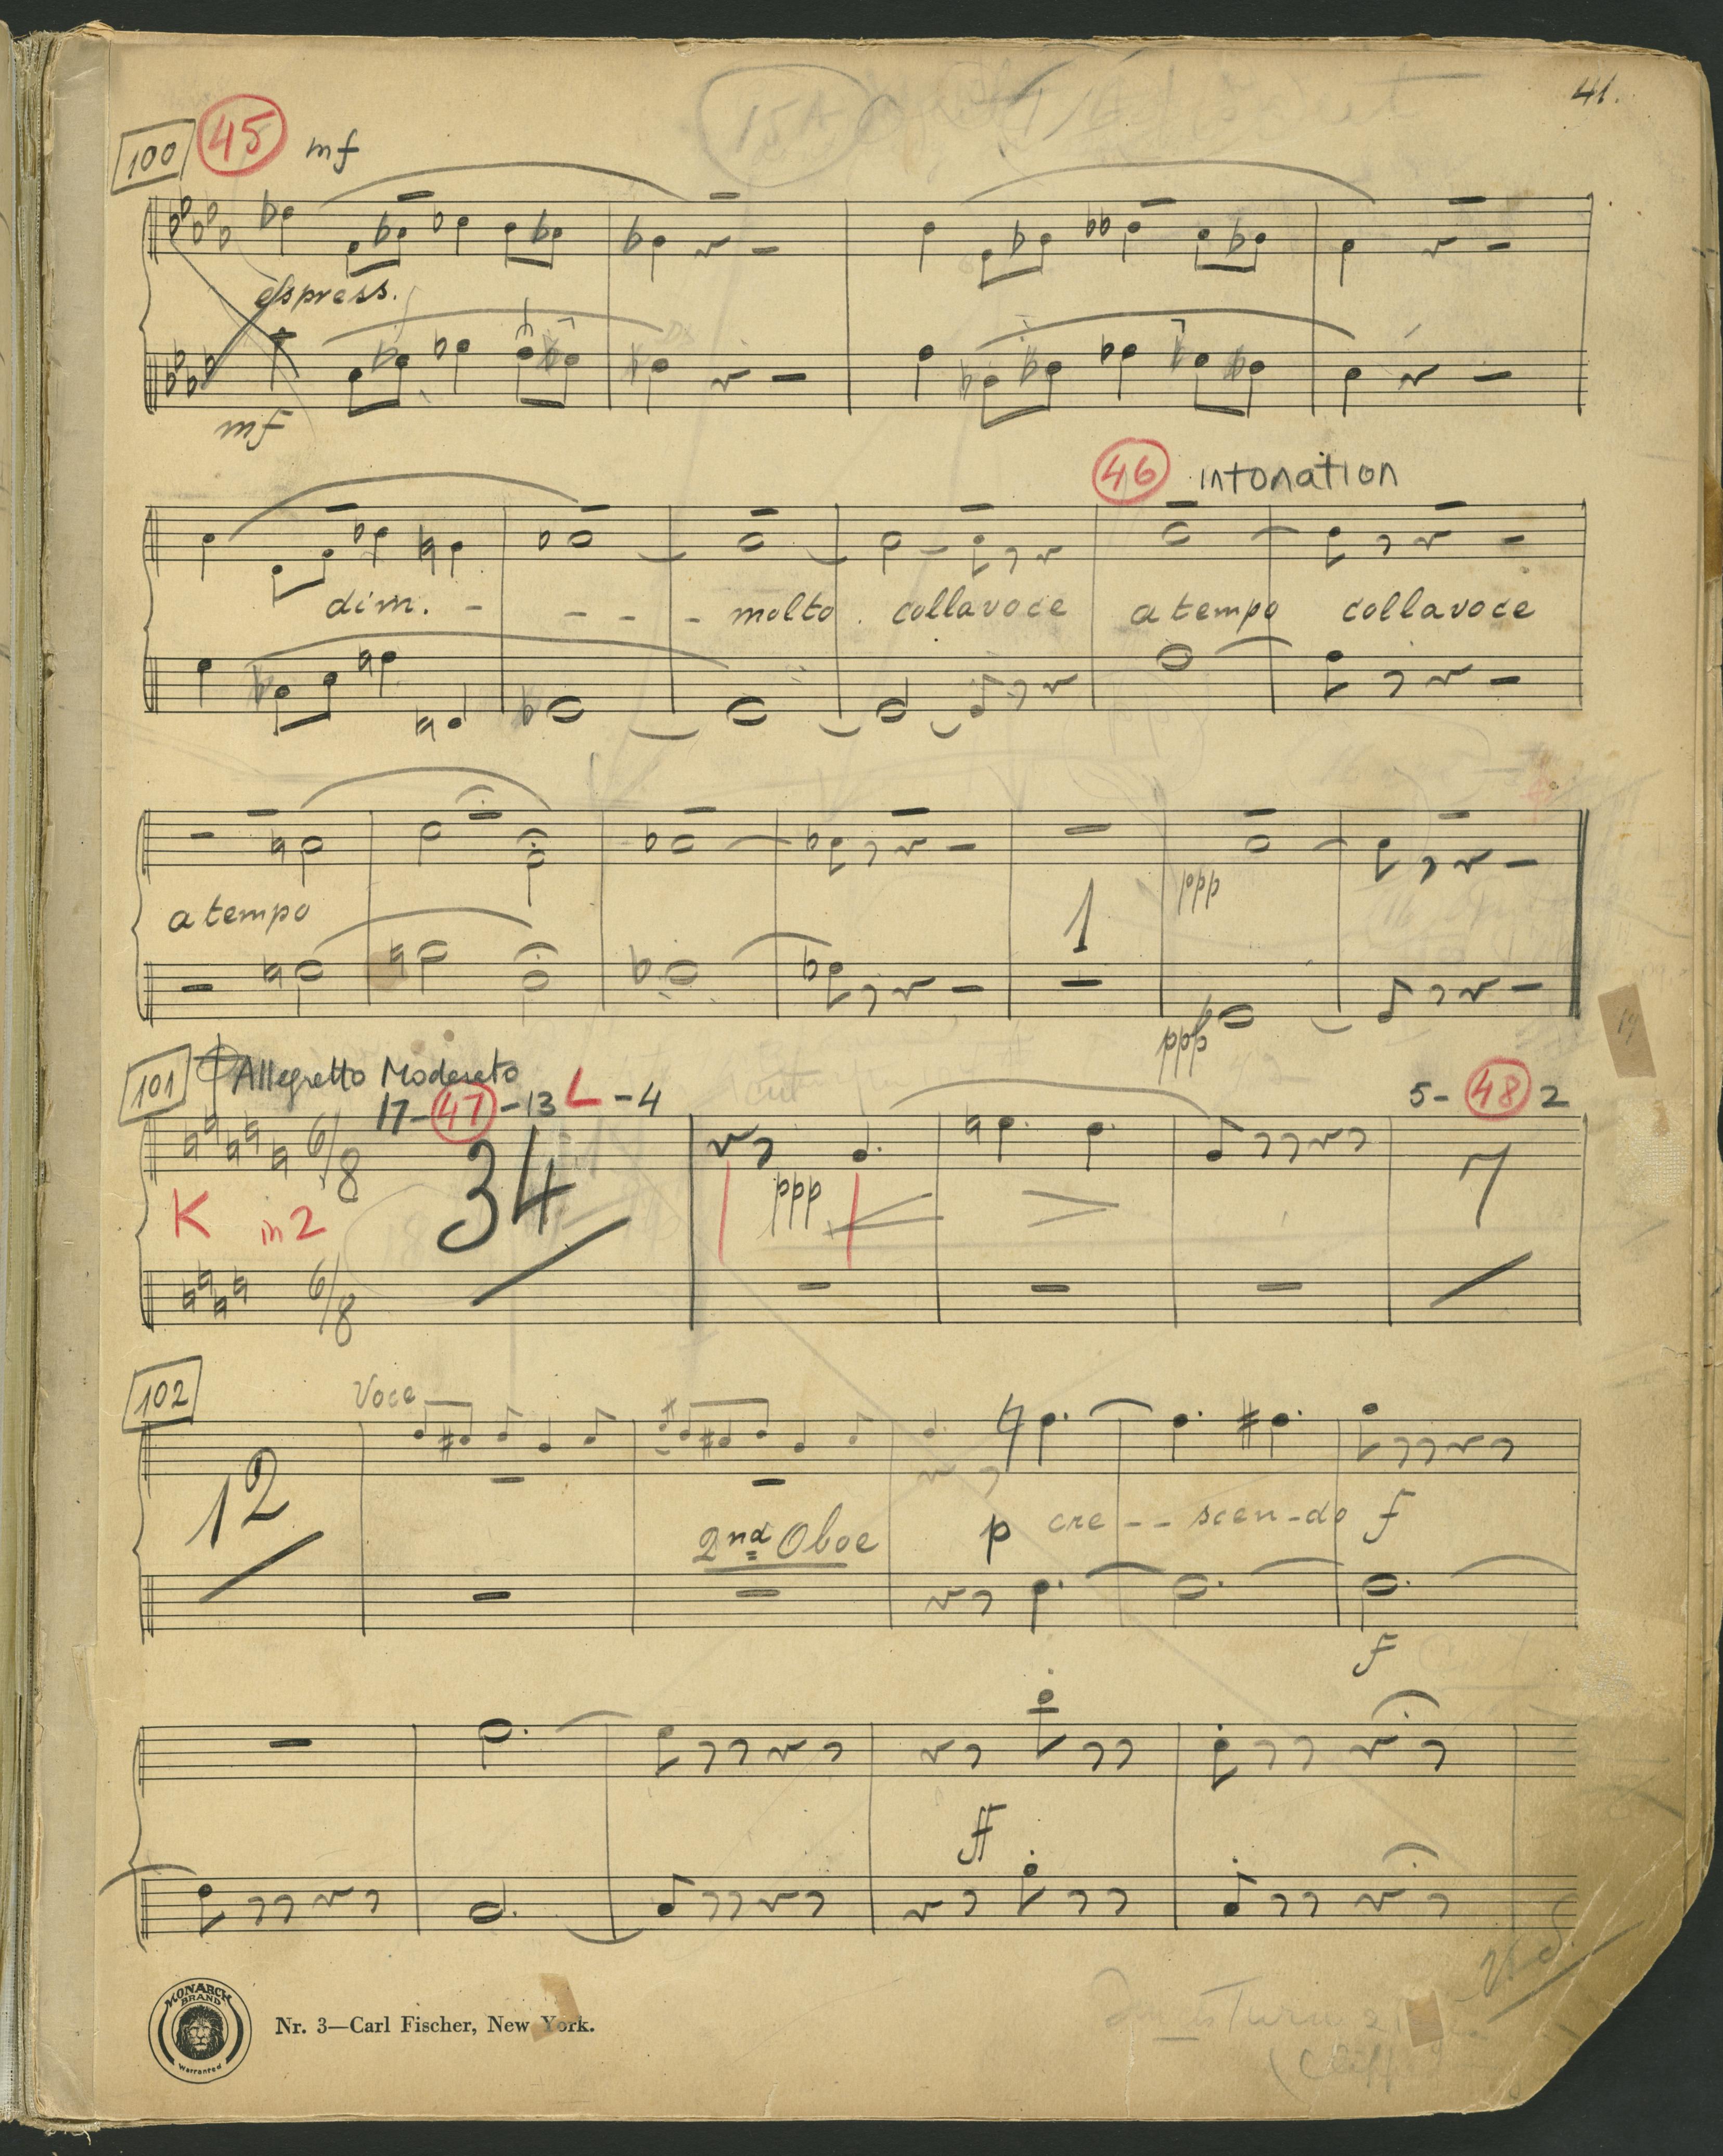 41.
100 45 mf
espress.
mf
46 intonation
dim. - - - - molto. collavoce a tempo collavoce
a tempo
1
ppp
ppp
101 Allegretto Moderato
17-47-13 L -4
5- 48 2
6/8 34 7
K in 2 ppp
6/8
102 Voce
12
2nd Oboe p cre - - scen - do f
f
ff
MONARCH
BRAND
Warranted
Nr. 3—Carl Fischer, New York.